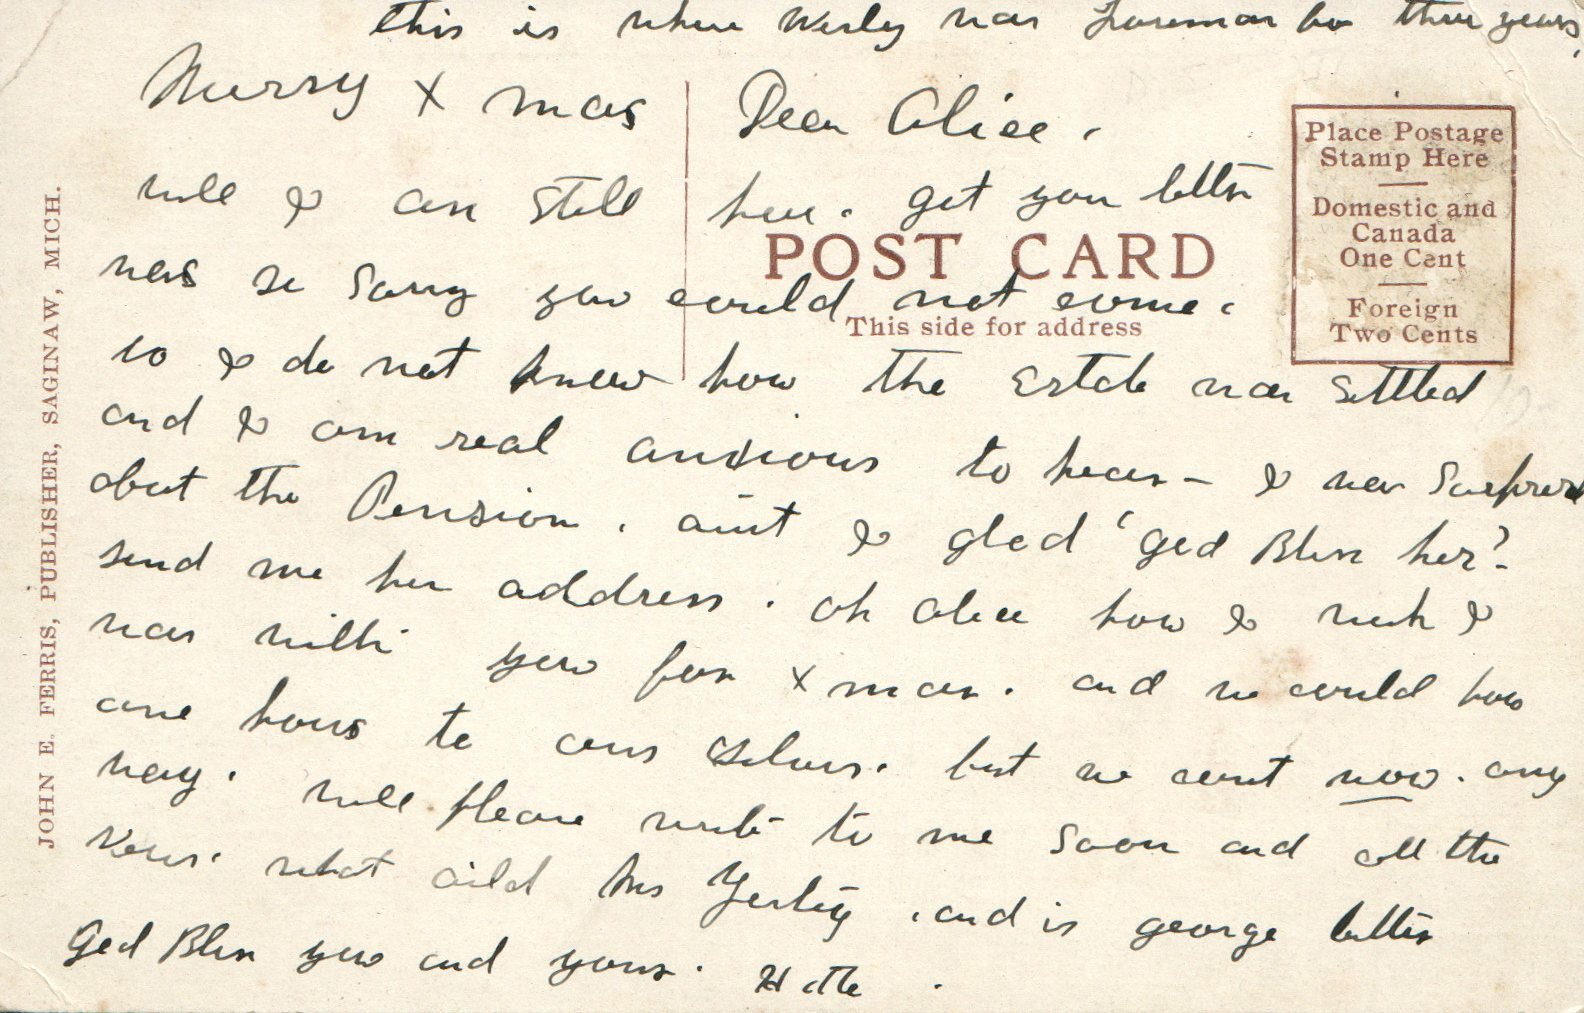 this is where Wesley was Foreman for three years,
Merry Xmas
Dear Alice.
well I am still here. got your letter
was so sorry you could not come.
so I do not know how the Estate was settled
and I am real anxious to hear - I was Surprised
about the Pension. aint I glad 'God Bless her'?
send me her address. oh Alice how I wish I
was with you for Xmas. and we could have
one hour to our selves. but we cant now. any
way. well please write to me soon and all the
News. what aild Mrs and is george better
God Bless you and yours. Hattie.
POST CARD
This side for address
Place Postage
Stamp Here
Domestic and
Canada
One Cent
Foreign
Two Cents
JOHN E. FERRIS, PUBLISHER, SAGINAW, MICH.